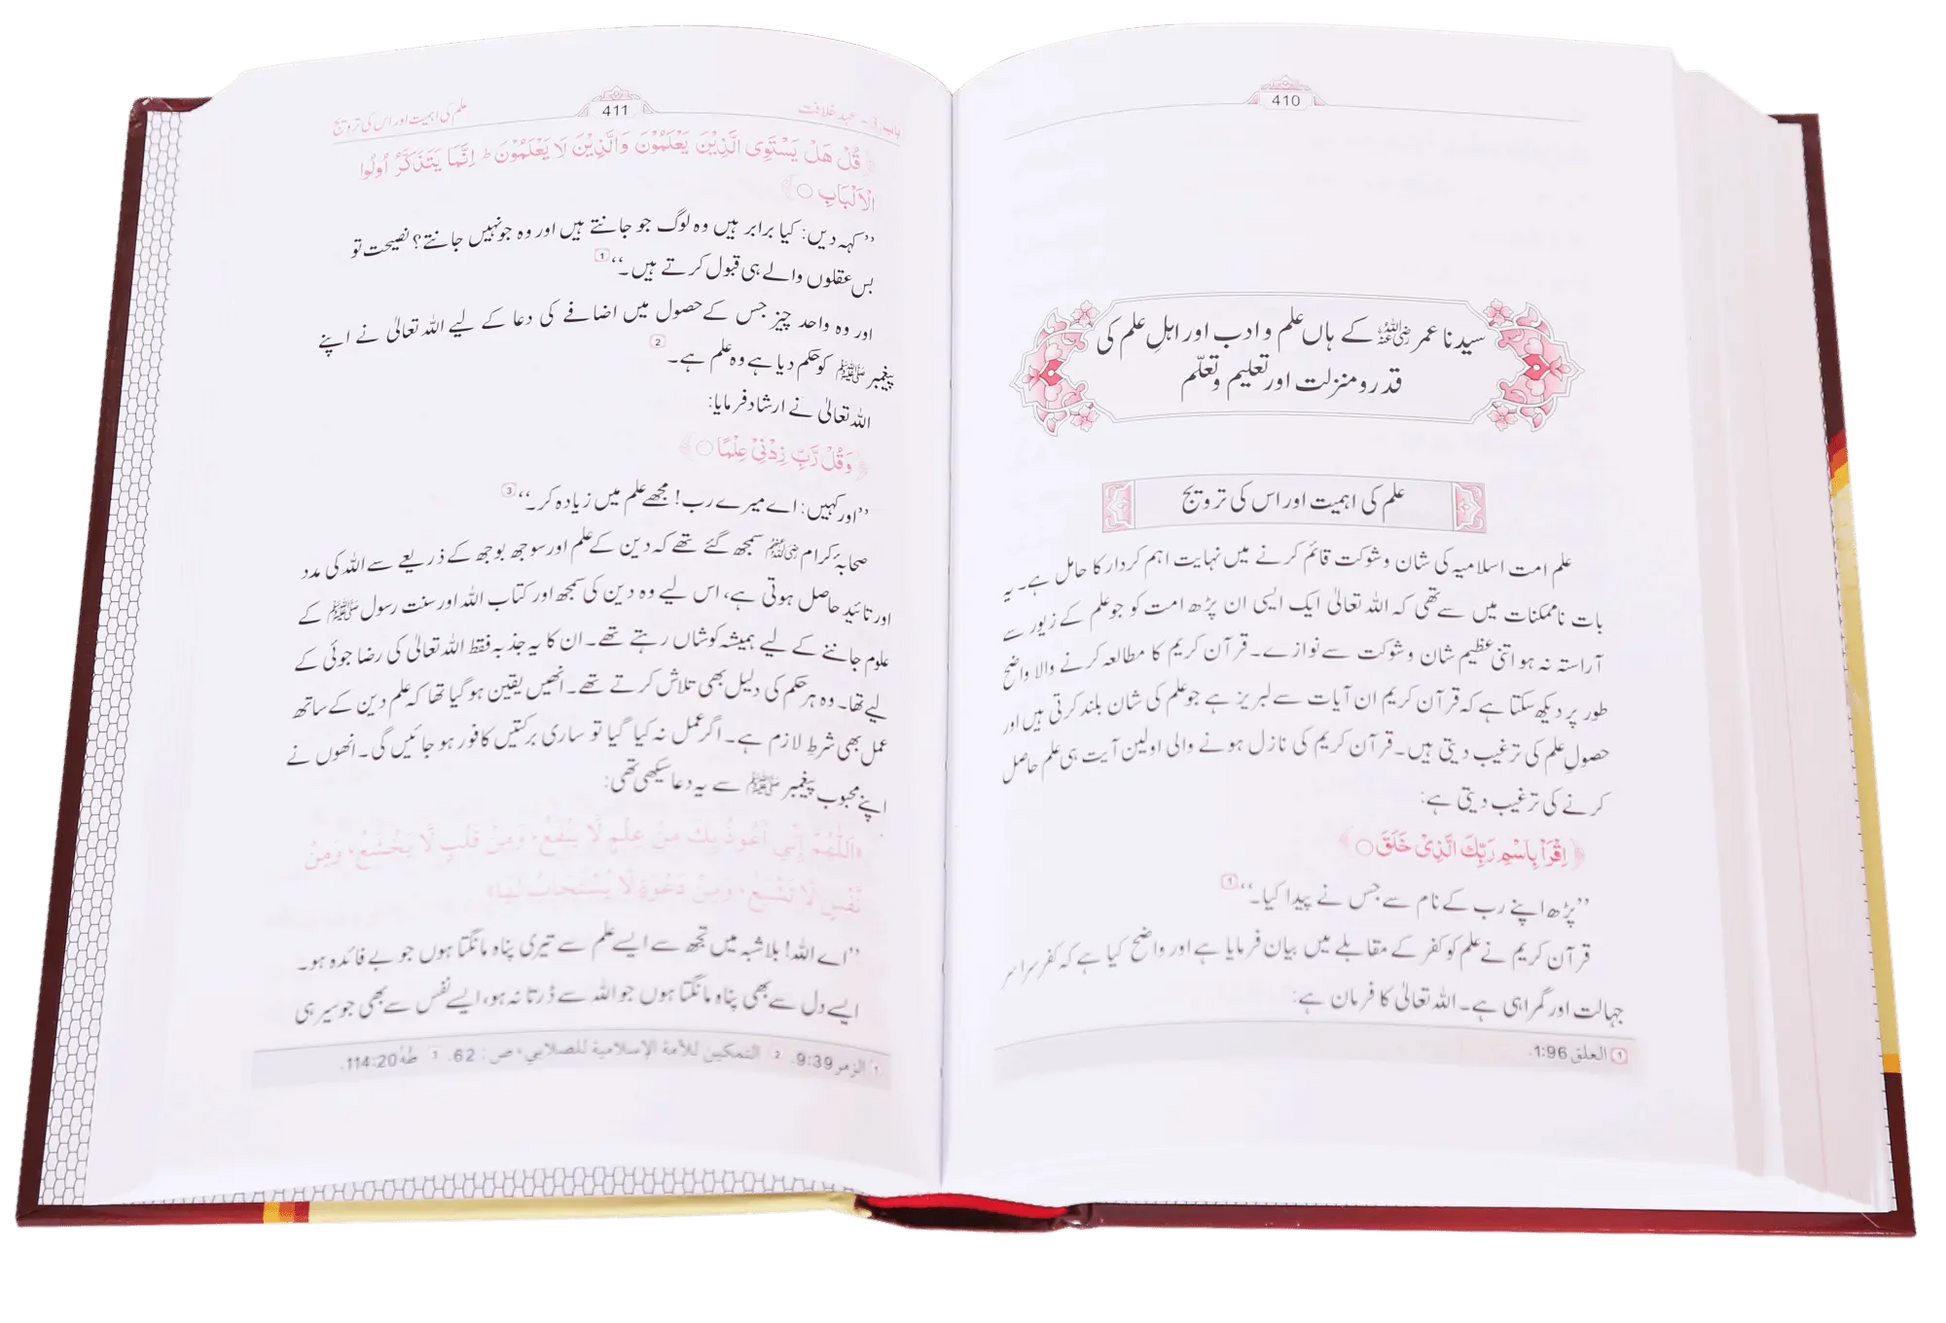 410
سیدنا عمر رضی اللہ عنہ کے ہاں علم و ادب اور اہلِ علم کی
قدر و منزلت اور تعلیم و تعلّم
علم کی اہمیت اور اس کی ترویج
علم امت اسلامیہ کی شان و شوکت قائم کرنے میں نہایت اہم کردار کا حامل ہے۔ یہ
بات ناممکنات میں سے تھی کہ اللہ تعالیٰ ایک ایسی ان پڑھ امت کو جو علم کے زیور سے
آراستہ نہ ہو اتنی عظیم شان و شوکت سے نوازے۔ قرآن کریم کا مطالعہ کرنے والا واضح
طور پر دیکھ سکتا ہے کہ قرآن کریم ان آیات سے لبریز ہے جو علم کی شان بلند کرتی ہیں اور
حصولِ علم کی ترغیب دیتی ہیں۔ قرآن کریم کی نازل ہونے والی اولین آیت ہی علم حاصل
کرنے کی ترغیب دیتی ہے:
﴿اِقْرَاْ بِاسْمِ رَبِّكَ الَّذِیْ خَلَقَ ○﴾
’’پڑھ اپنے رب کے نام سے جس نے پیدا کیا۔‘‘ 1
قرآن کریم نے علم کو کفر کے مقابلے میں بیان فرمایا ہے اور واضح کیا ہے کہ کفر سراسر
جہالت اور گمراہی ہے۔ اللہ تعالیٰ کا فرمان ہے:
1 العلق 1:96.
باب:3 - عہد خلافت 411 علم کی اہمیت اور اس کی ترویج
﴿قُلْ هَلْ یَسْتَوِی الَّذِیْنَ یَعْلَمُوْنَ وَالَّذِیْنَ لَا یَعْلَمُوْنَ ؕ اِنَّمَا یَتَذَكَّرُ اُولُوا
الْاَلْبَابِ ○﴾
’’کہہ دیں: کیا برابر ہیں وہ لوگ جو جانتے ہیں اور وہ جو نہیں جانتے؟ نصیحت تو
بس عقلوں والے ہی قبول کرتے ہیں۔‘‘ 1
اور وہ واحد چیز جس کے حصول میں اضافے کی دعا کے لیے اللہ تعالیٰ نے اپنے
پیغمبر ﷺ کو حکم دیا ہے وہ علم ہے۔ 2
اللہ تعالیٰ نے ارشاد فرمایا:
﴿وَقُلْ رَّبِّ زِدْنِیْ عِلْمًا ○﴾
’’اور کہیں: اے میرے رب! مجھے علم میں زیادہ کر۔‘‘ 3
صحابۂ کرام رضی اللہ عنہم سمجھ گئے تھے کہ دین کے علم اور سوجھ بوجھ کے ذریعے سے اللہ کی مدد
اور تائید حاصل ہوتی ہے، اس لیے وہ دین کی سمجھ اور کتاب اللہ اور سنت رسول ﷺ کے
علوم جاننے کے لیے ہمیشہ کوشاں رہتے تھے۔ ان کا یہ جذبہ فقط اللہ تعالیٰ کی رضا جوئی کے
لیے تھا۔ وہ ہر حکم کی دلیل بھی تلاش کرتے تھے۔ انھیں یقین ہو گیا تھا کہ علم دین کے ساتھ
عمل بھی شرطِ لازم ہے۔ اگر عمل نہ کیا گیا تو ساری برکتیں کافور ہو جائیں گی۔ انھوں نے
اپنے محبوب پیغمبر ﷺ سے یہ دعا سیکھی تھی:
«اَللّٰهُمَّ إِنِّي أَعُوذُ بِكَ مِنْ عِلْمٍ لَّا يَنْفَعُ، وَمِنْ قَلْبٍ لَّا يَخْشَعُ، وَمِنْ
نَّفْسٍ لَّا تَشْبَعُ، وَمِنْ دَعْوَةٍ لَّا يُسْتَجَابُ لَهَا»
’’اے اللہ! بلاشبہ میں تجھ سے ایسے علم سے تیری پناہ مانگتا ہوں جو بے فائدہ ہو۔
ایسے دل سے بھی پناہ مانگتا ہوں جو اللہ سے ڈرتا نہ ہو، ایسے نفس سے بھی جو سیر ہی
1 الزمر 9:39. 2 التمكين للأمة الإسلامية للصلابي، ص: 62. 3 طٰهٰ 114:20.